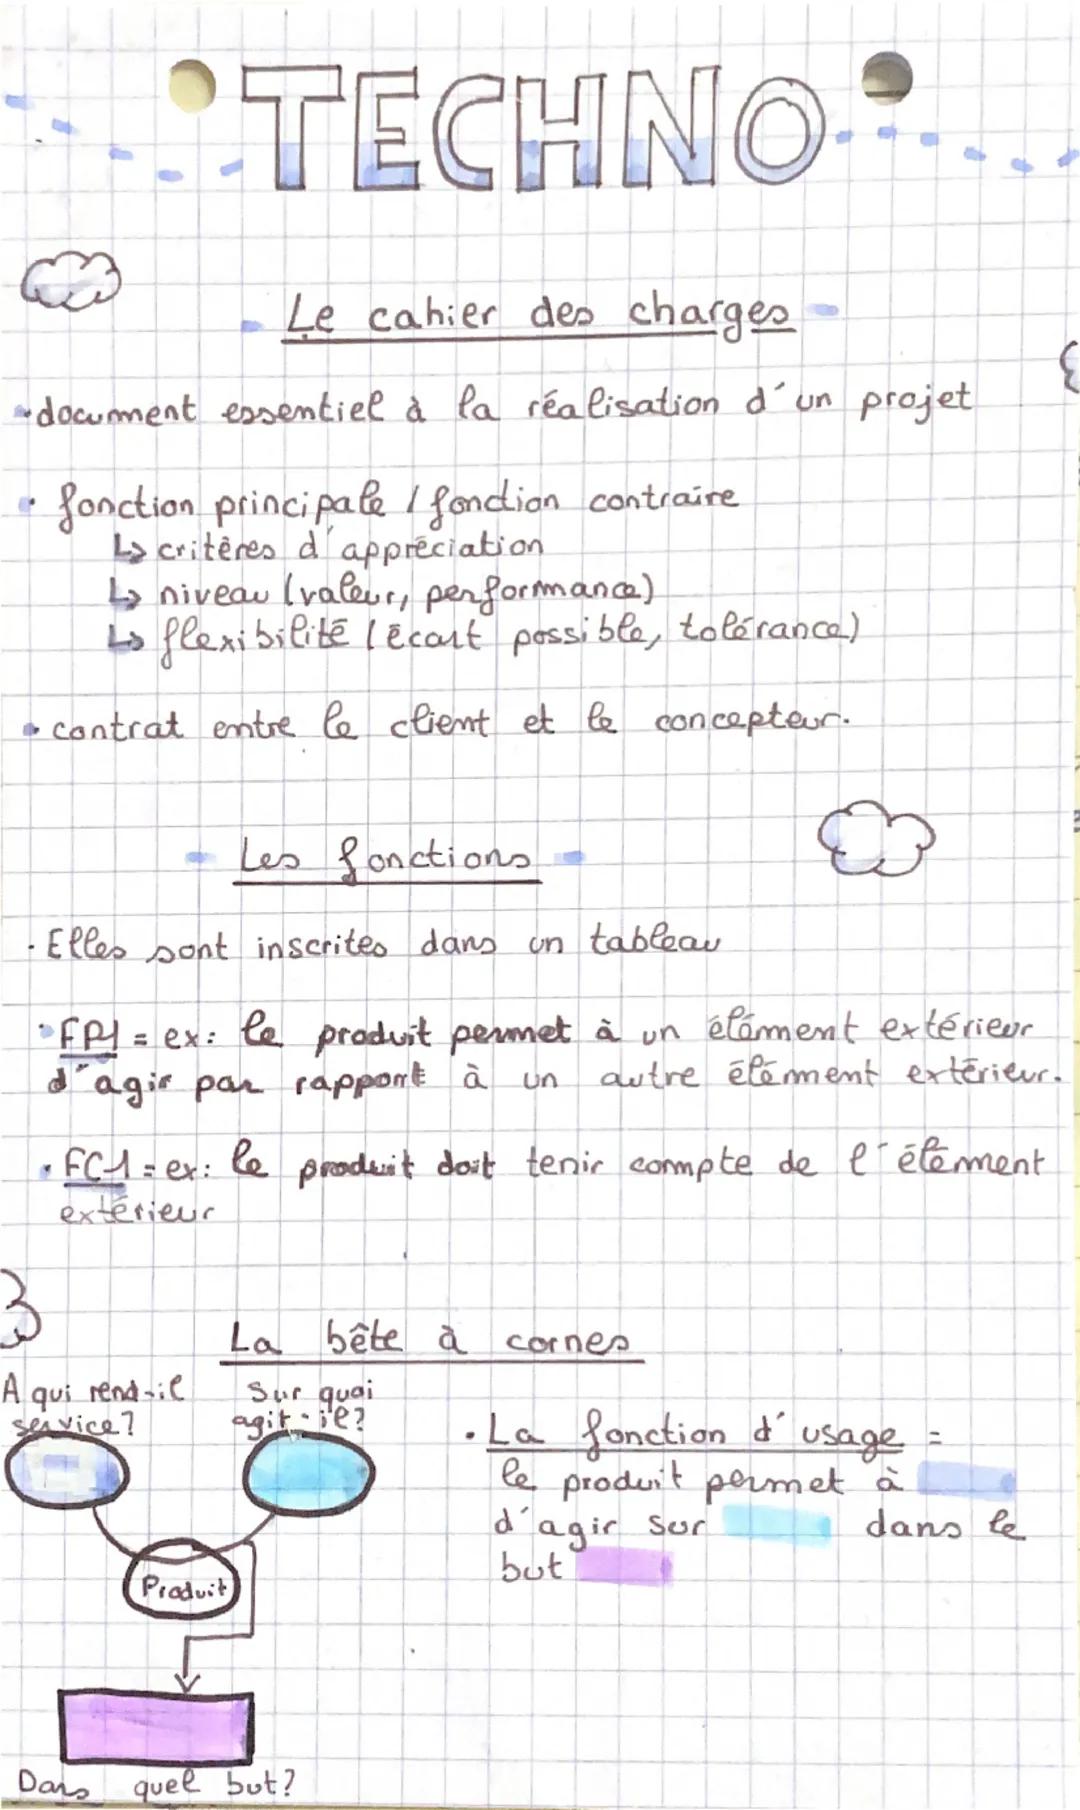 TECHNO
Le cahier des charges
document essentiel à la réalisation d'un projet
• fonction principale / fonction contraire
↳ critères d'appréciation
↳ niveau (valeur, performance)
↳ flexibilité (écart possible, tolérance)
• contrat entre le client et le concepteur.
Les fonctions
• Elles sont inscrites dans un tableau
• FP1 = ex: le produit permet à un élément extérieur
d'agir par rapport à un autre élément extérieur.
• FC1 = ex: le produit doit tenir compte de l'élément
extérieur
La bête à cornes
A qui rend-il
service?
Sur quoi
agit-il?
Produit
Dans quel but?
• La fonction d'usage =
le produit permet à
d'agir sur dans le
but